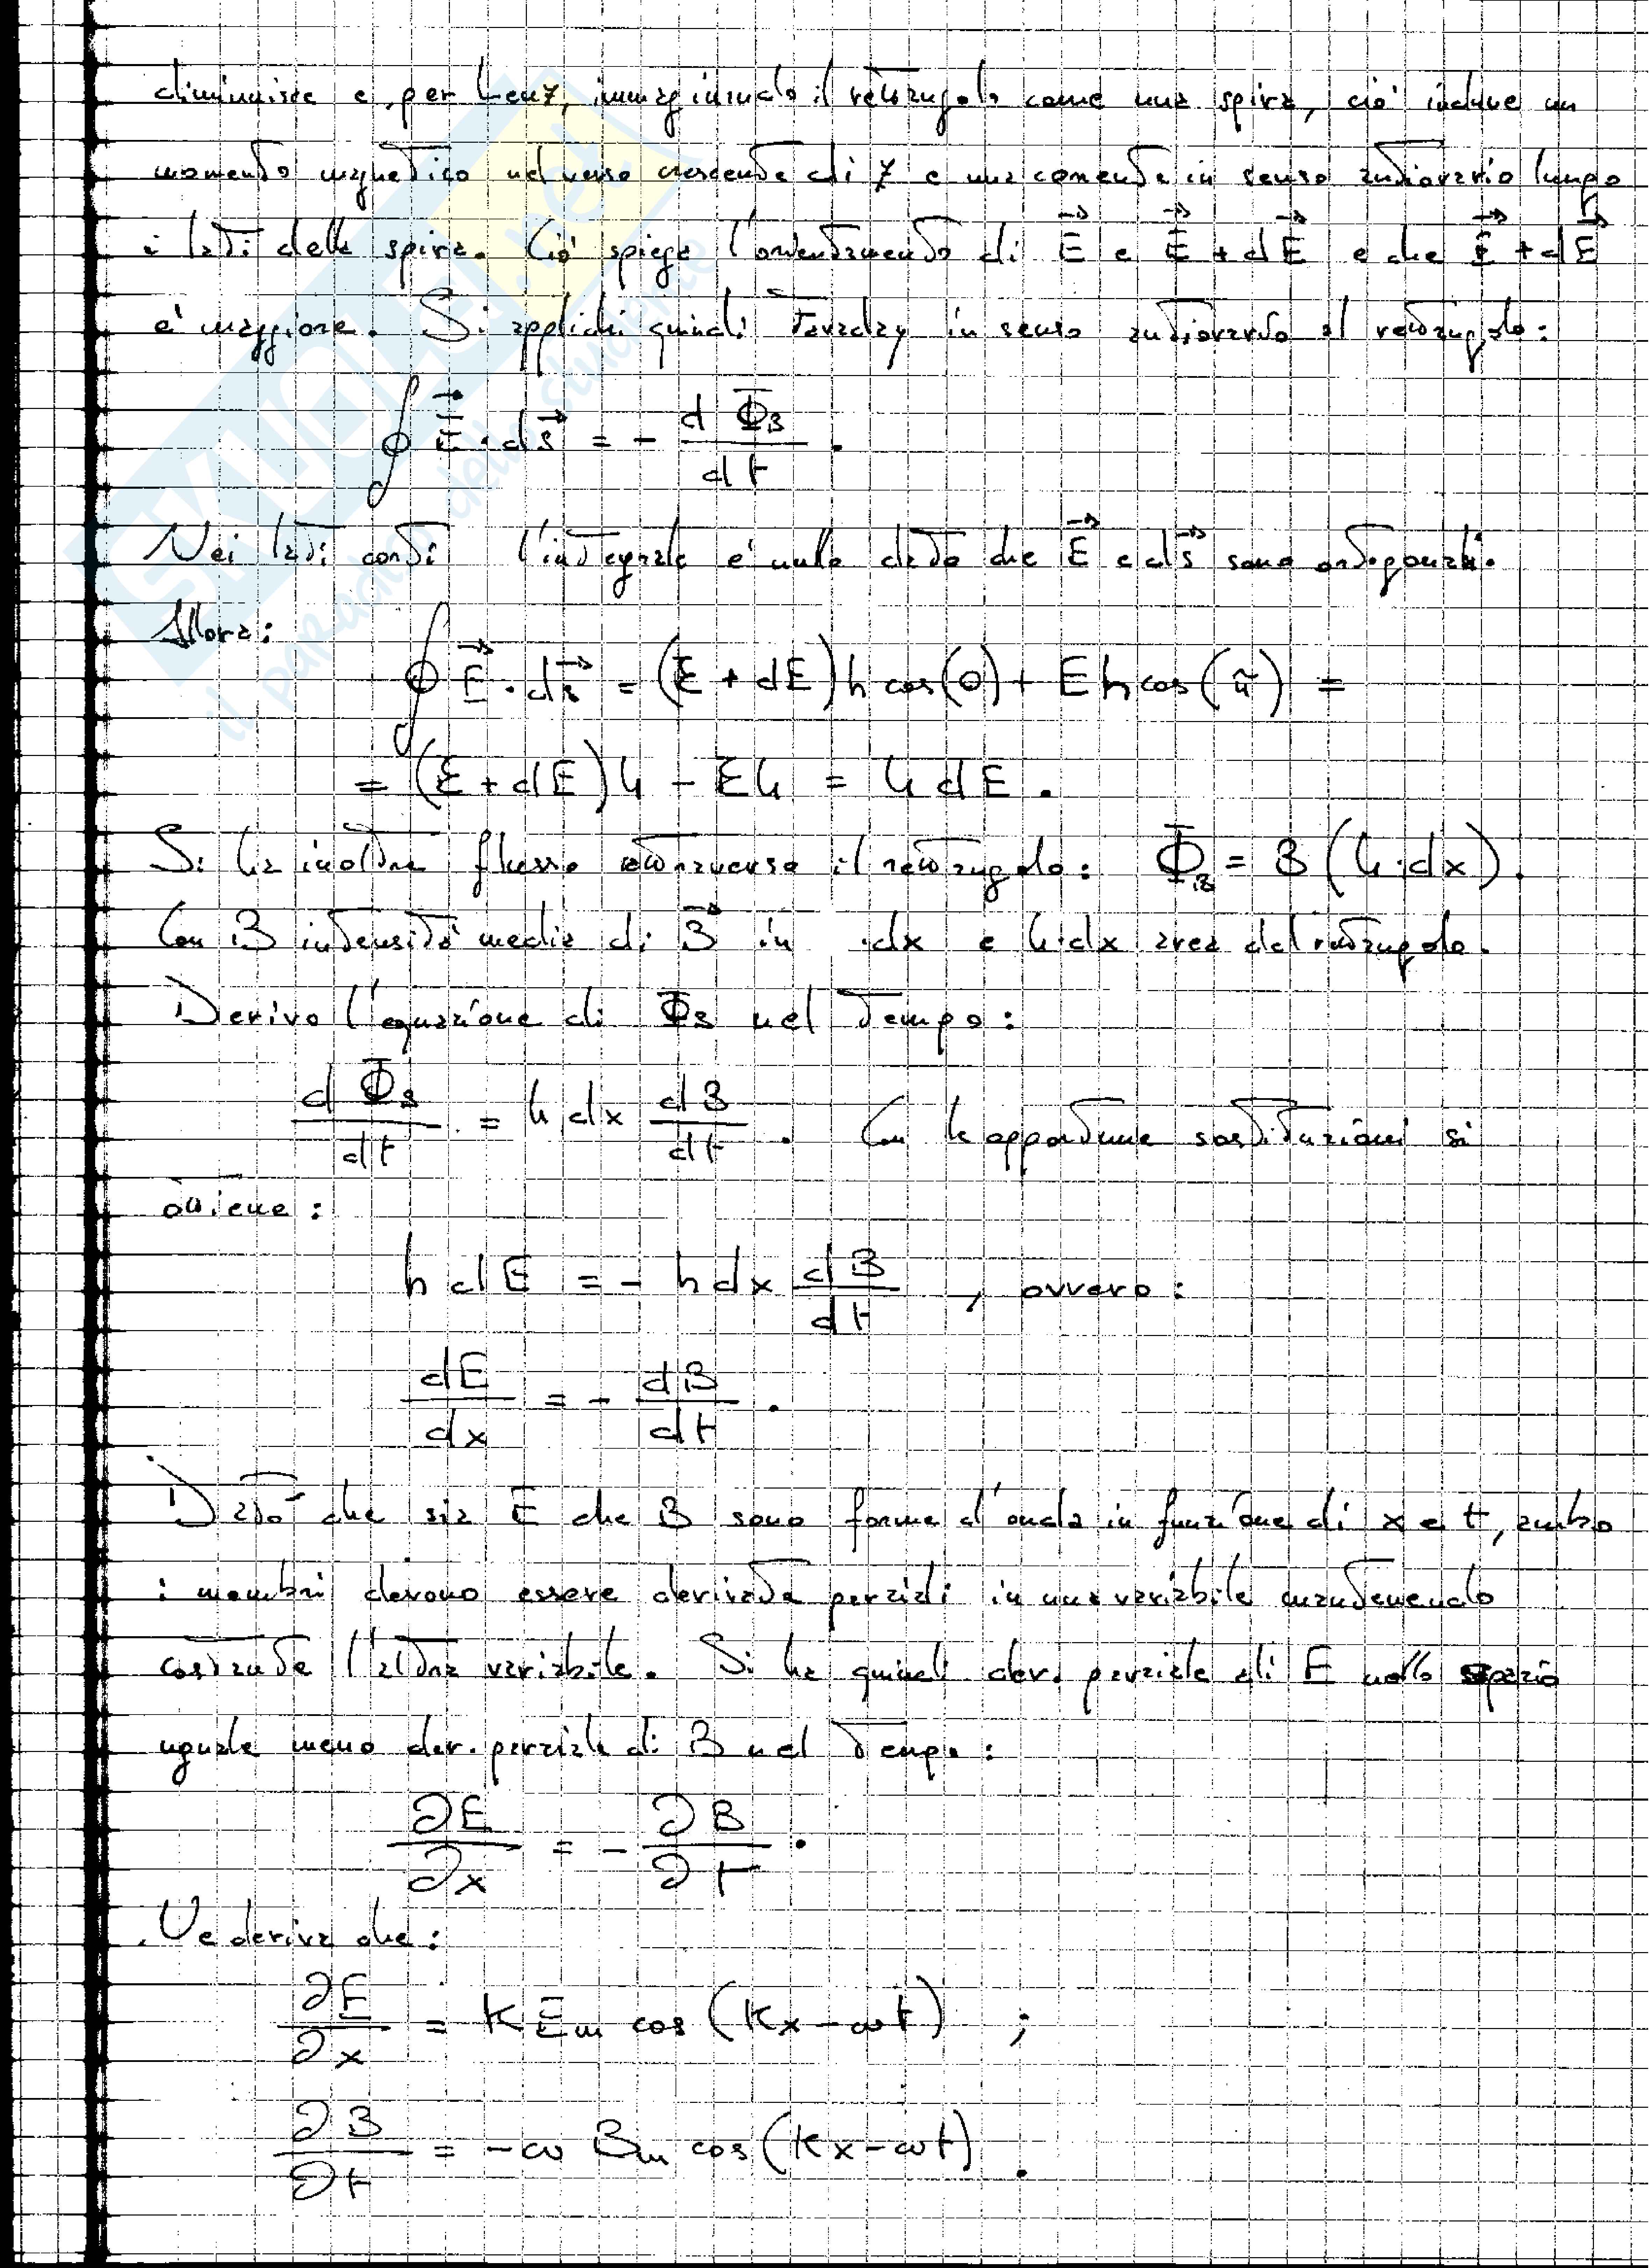 diminuisce e, per Lenz, immaginando il rettangolo come una spira, ciò induce un
momento magnetico nel verso crescente di z e una corrente in senso antiorario lungo
i lati della spira. Ciò spiega l'orientamento di E⃗ e E⃗ + dE⃗ e che E⃗ + dE⃗
e' maggiore. Si applichi quindi Faraday in senso antiorario al rettangolo:
∮ E⃗ · ds⃗ = - dΦ_B / dt .
Nei lati corti l'integrale e' nullo dato che E⃗ e ds⃗ sono ortogonali.
Allora:
∮ E⃗ · ds⃗ = (E + dE) h cos(0) + E h cos(π) =
= (E + dE) h - E h = h dE .
Si ha inoltre flusso attraverso il rettangolo: Φ_B = B (h·dx).
Con B intensità media di B⃗ in dx e h·dx area del rettangolo.
Derivo l'equazione di Φ_B nel tempo:
dΦ_B / dt = h dx dB / dt . Con le opportune sostituzioni si
ottiene:
h dE = - h dx dB / dt , ovvero:
dE / dx = - dB / dt .
Dato che sia E che B sono forme d'onda in funzione di x e t, ambo
i membri devono essere derivate parziali in una variabile mantenendo
costante l'altra variabile. Si ha quindi der. parziale di E nello spazio
uguale meno der. parziale di B nel tempo:
∂E / ∂x = - ∂B / ∂t .
Ne deriva che:
∂E / ∂x = K E_m cos (Kx - ωt) ;
∂B / ∂t = -ω B_m cos (Kx - ωt) .
SKUOLA.net
il paradiso dello studente